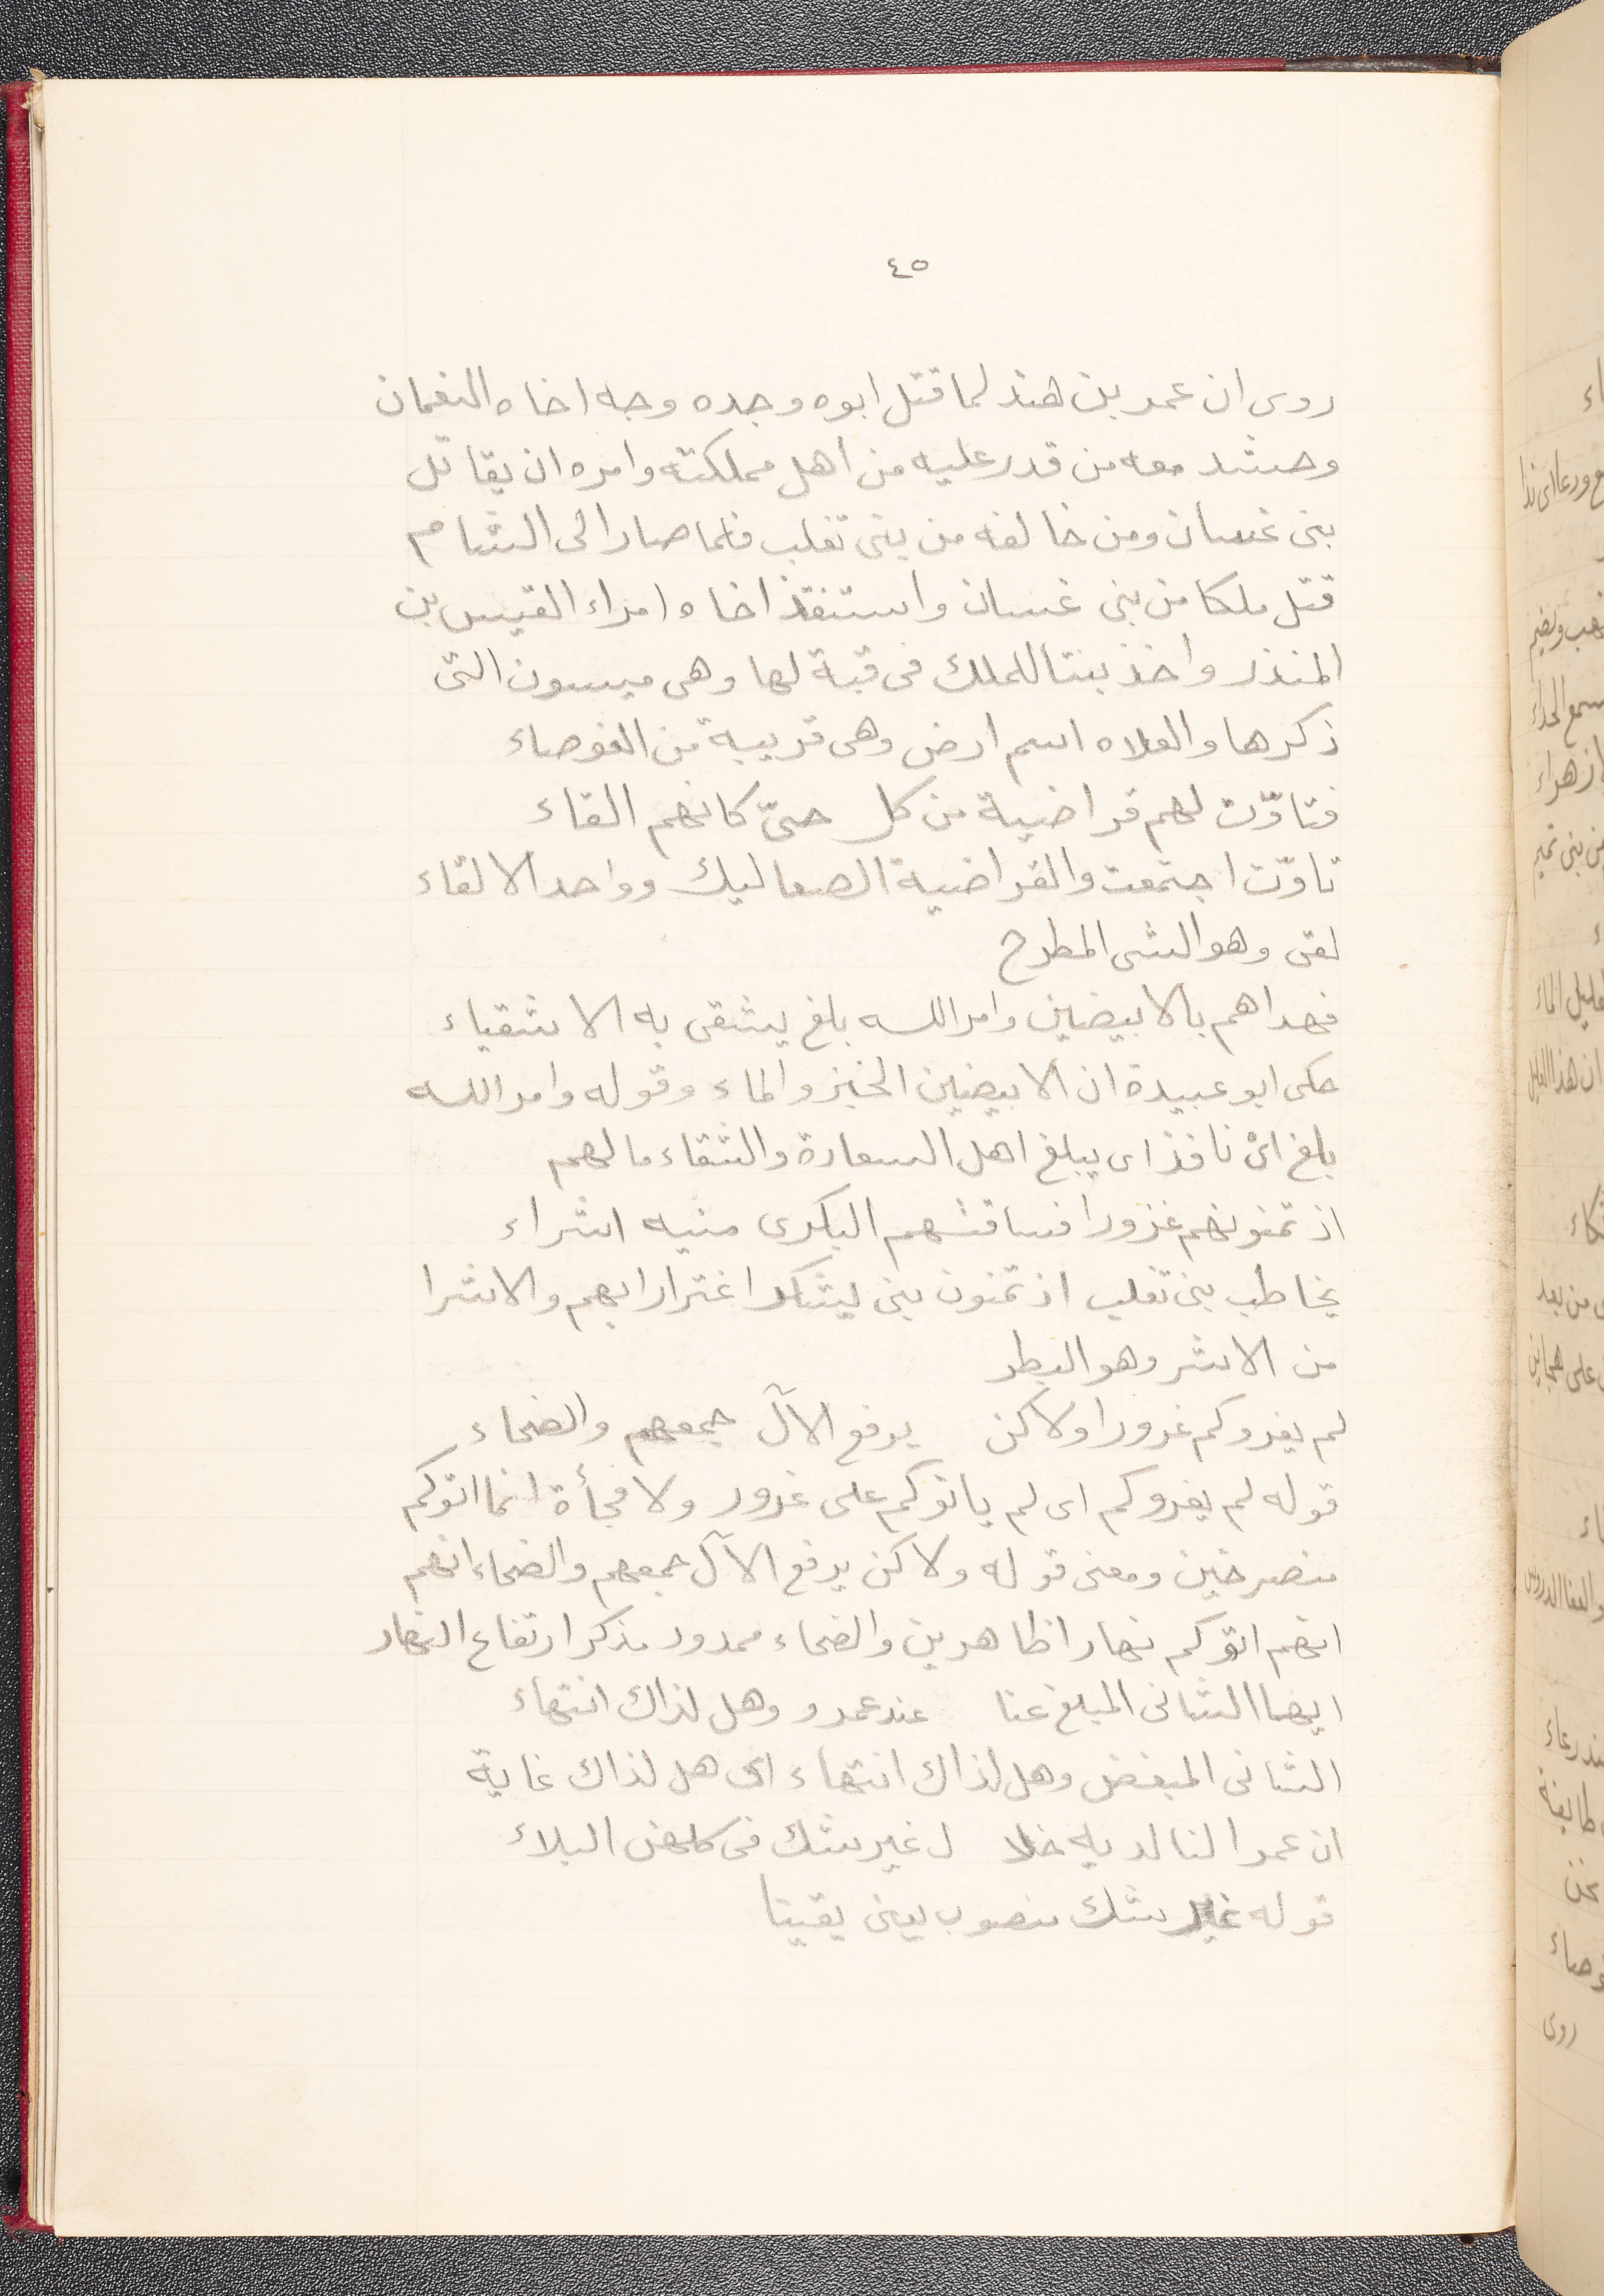 ٤٥
روى ان عمر بن هند لما قتل ابوه وجده وجه اخاه النعمان
وحشد معه من قدر عليه من اهل مملكته وامره ان يقاتل
بنى غسان ومن خالفه من بنى تغلب فلما صار الى الشام
قتل ملكا من بنى غسان واستنقذ اخاه امراء القيس بن
المنذر واخذ بنتا للملك فى قبة لها وهى ميسون التى
ذكرها والعلاه اسم ارض وهى قريبة من العوصاء
فتاوّت لهم قراضبة من كل حىّ كانهم القاء
تاوّت اجتمعت والقراضبة الصعاليك وواحد الالقاء
لقى وهو الشى المطرح
فهداهم بالابيضين وامر الله بلغ يشقى به الاشقياء
حكى ابو عبيدة ان الابيضين الخبز والماء وقوله وامر الله
بلغ اىْ نافذ اى يبلغ اهل السعادة والشقاء ما لهم
اذ تمنونهم غرورا فساقتهم اليكرى منيه اشراء
يخاطب بنى تغلب اذ تمنون بنى يشكر اغترارا بهم والاشرا
من الاشر وهو البطر
لم يغروكم غرورا ولاكن يرفع الآل جمعهم والضحاء
قوله لم يغروكم اى لم ياتوكم على غرور ولا فجأة انما اتوكم
منصرخين ومعنى قوله ولاكن يرفع الآل جمعهم والضحاء انهم
انهم اتوكم نهارا ظاهرين والضحاء ممدود مذكر ارتفاع النهار
ايها الشانى المبلغ عنا عند عمرو وهل لذاك انتهاء
الشانى المبغض وهل لذاك انتهاء اى هل لذاك غاية
ان عمرا لنا لديه خلا ل غير شك فى كلهن البلاء
قوله غير شك منصوب يعنى يقينا